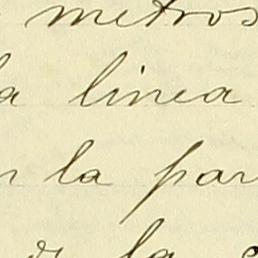 metros
la linea
la par
la